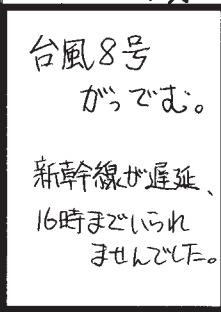 台風8号
がっでむ。
新幹線が遅延、
16時までいられ
ませんでした。